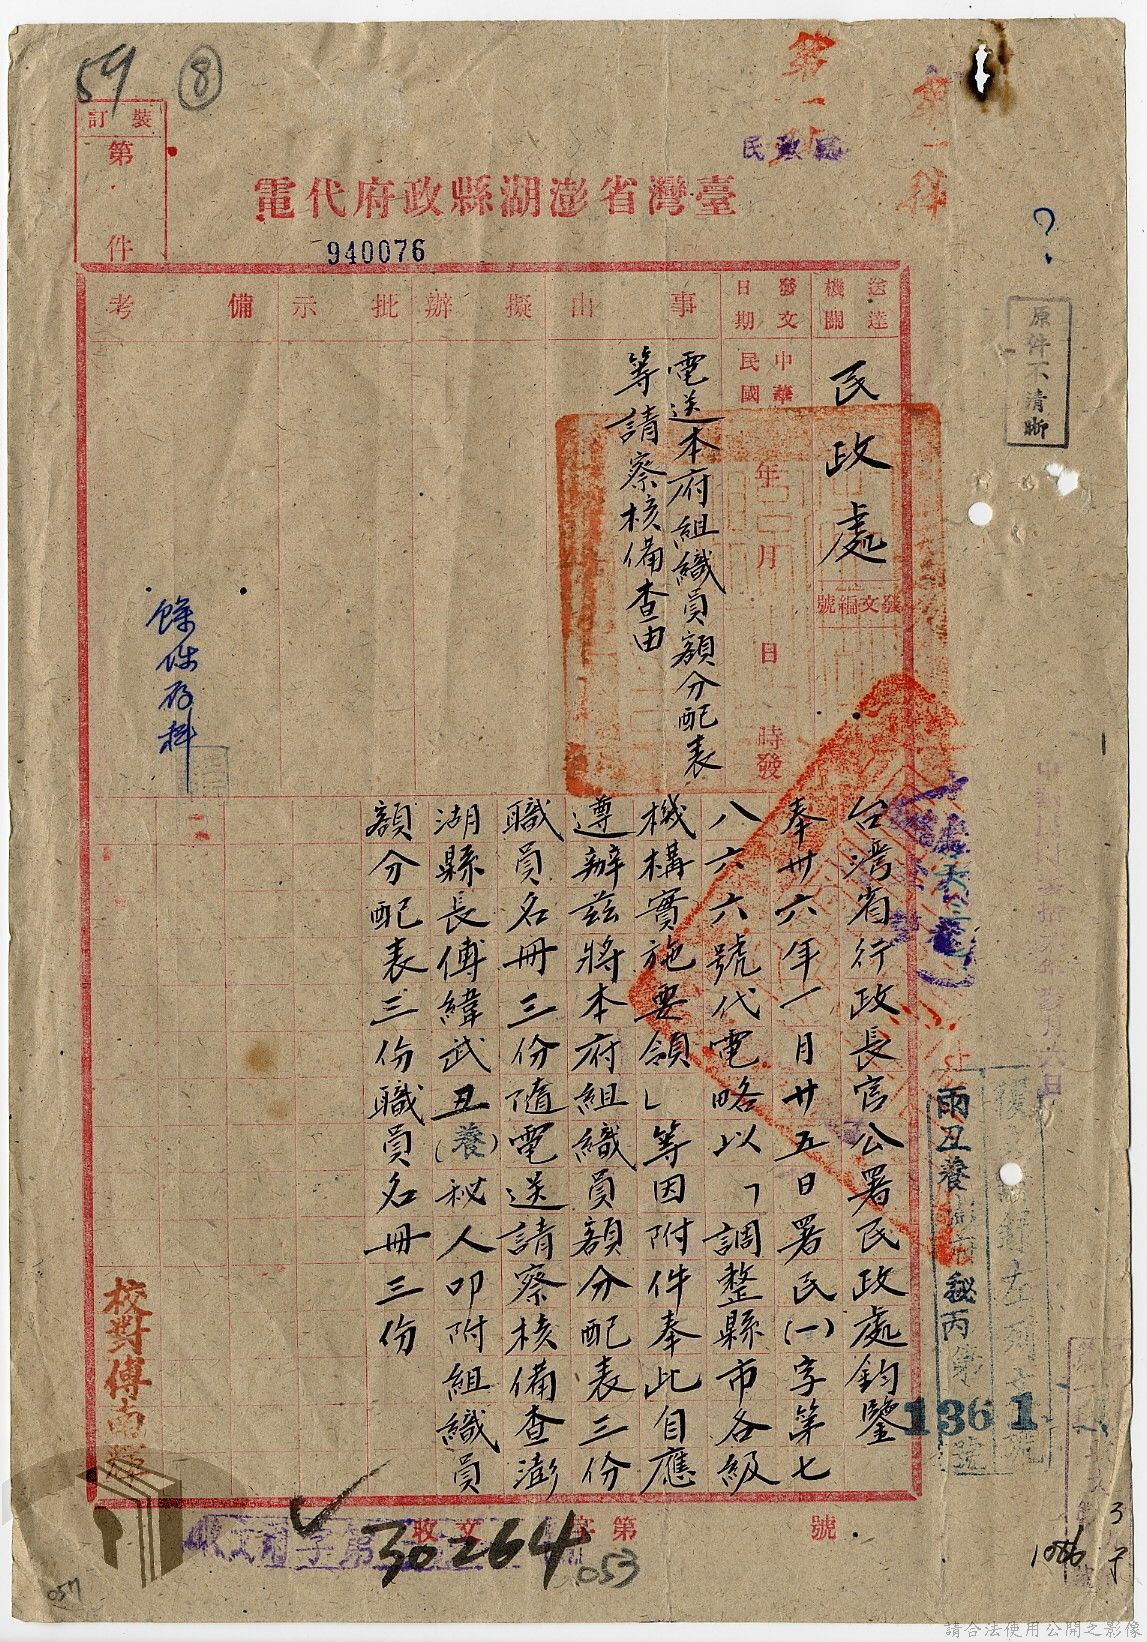 59
⑧
裝訂
第
件
第一科
第一科
民政處
臺灣省澎湖縣政府代電
940076
原件不清晰
送達機關
民政處
發文編號
發文日期
中華民國
年
月
日
時發
事由
電送本府組織員額分配表
等請察核備查由
擬辦
批示
備考
餘件存科
台湾省行政長官公署民政處鈞鑒
奉卅六年一月廿五日署民(一)字第七
八六六號代電略以「調整縣市各級
機構實施要領」等因附件奉此自應
遵辦茲將本府組織員額分配表三份
職員名冊三份隨電送請察核備查澎
湖縣長傅緯武丑(養)秘人叩附組織員
額分配表三份職員名冊三份
雨丑養澎府秘丙第
1361
號
校對傅南輝
收文
字第
號
30264
053
057
1086
請合法使用公開之影像